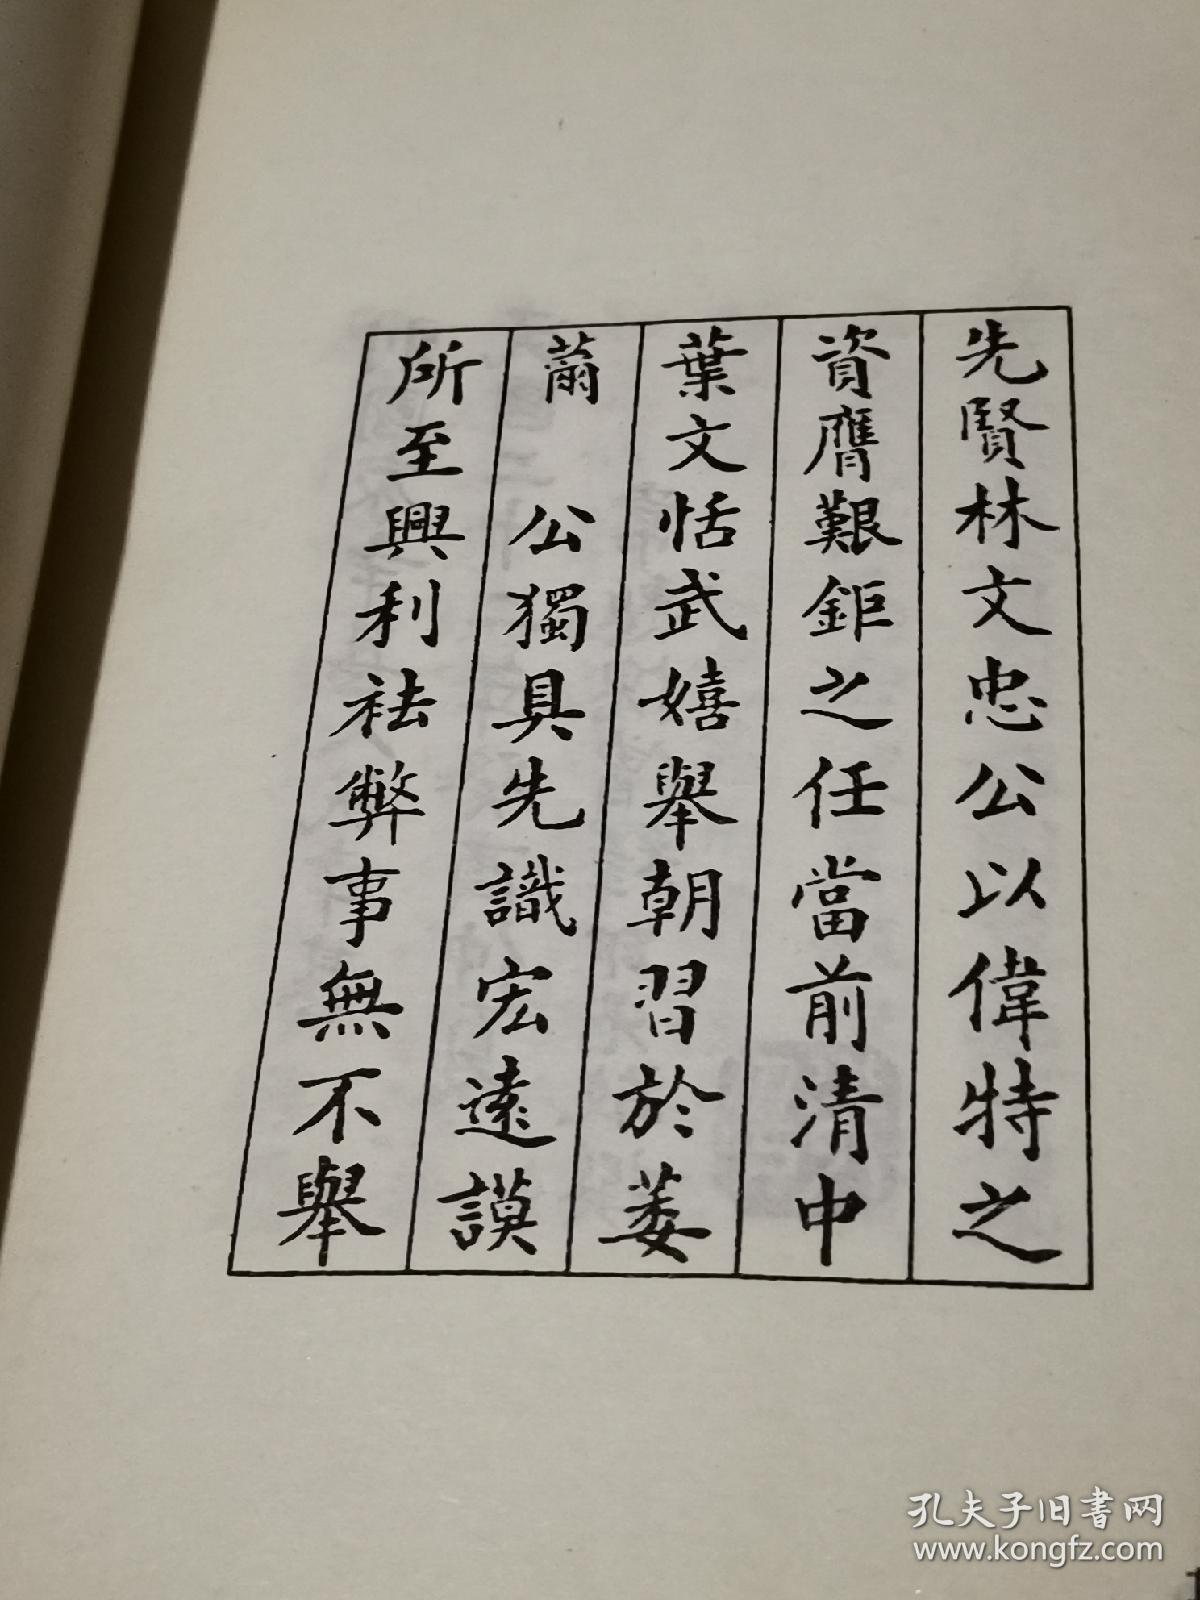 先賢林文忠公以偉特之
資膺艱鉅之任當前清中
葉文恬武嬉舉朝習於萎
薾　公獨具先識宏遠謨
所至興利祛弊事無不舉
孔夫子旧书网
www.kongfz.com